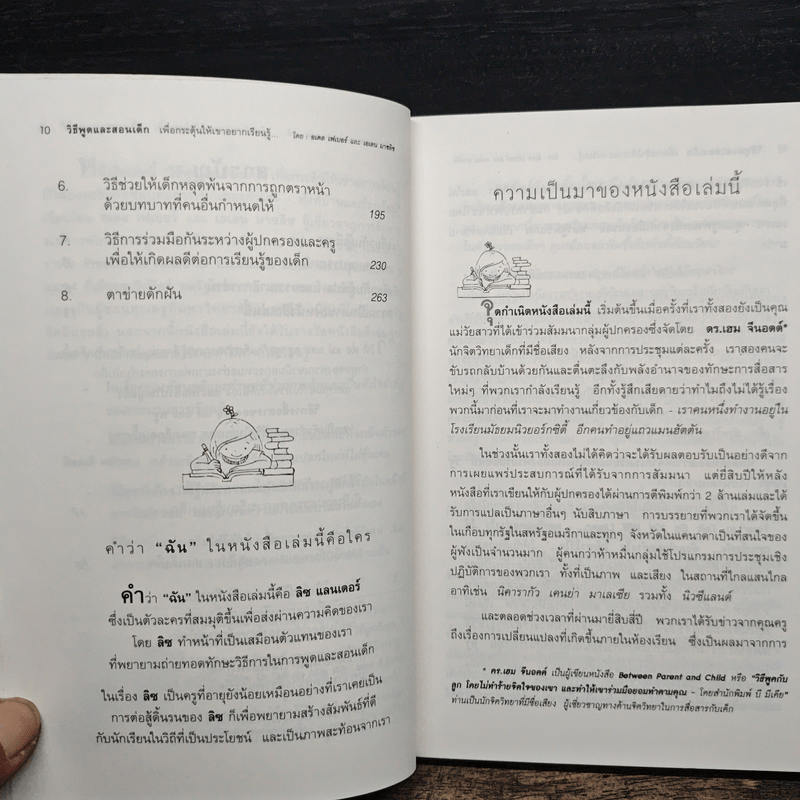 10 วิธีพูดและสอนเด็ก เพื่อกระตุ้นให้เขาอยากเรียนรู้... โดย : อเดล เฟเบอร์ และ เอเลน มาซลิช
6. วิธีช่วยให้เด็กหลุดพ้นจากการถูกตราหน้า
ด้วยบทบาทที่คนอื่นกำหนดให้ 195
7. วิธีการร่วมมือกันระหว่างผู้ปกครองและครู
เพื่อให้เกิดผลดีต่อการเรียนรู้ของเด็ก 230
8. ตาข่ายดักฝัน 263
คำว่า “ฉัน” ในหนังสือเล่มนี้คือใคร
คำว่า “ฉัน” ในหนังสือเล่มนี้คือ ลิซ แลนเดอร์
ซึ่งเป็นตัวละครที่สมมุติขึ้นเพื่อส่งผ่านความคิดของเรา
โดย ลิซ ทำหน้าที่เป็นเสมือนตัวแทนของเรา
ที่พยายามถ่ายทอดทักษะวิธีการในการพูดและสอนเด็ก
ในเรื่อง ลิซ เป็นครูที่อายุยังน้อยเหมือนอย่างที่เราเคยเป็น
การต่อสู้ดิ้นรนของ ลิซ ก็เพื่อพยายามสร้างสัมพันธ์ที่ดี
กับนักเรียนในวิถีที่เป็นประโยชน์ และเป็นภาพสะท้อนจากเรา
ความเป็นมาของหนังสือเล่มนี้
จุดกำเนิดหนังสือเล่มนี้ เริ่มต้นขึ้นเมื่อครั้งที่เราทั้งสองยังเป็นคุณ
แม่วัยสาวที่ได้เข้าร่วมสัมมนากลุ่มผู้ปกครองซึ่งจัดโดย ดร.เฮม จีนอตต์*
นักจิตวิทยาเด็กที่มีชื่อเสียง หลังจากการประชุมแต่ละครั้ง เราสองคนจะ
ขับรถกลับบ้านด้วยกันและตื่นตะลึงกับพลังอำนาจของทักษะการสื่อสาร
ใหม่ๆ ที่พวกเรากำลังเรียนรู้ อีกทั้งรู้สึกเสียดายว่าทำไมถึงไม่ได้รู้เรื่อง
พวกนี้มาก่อนที่เราจะมาทำงานเกี่ยวข้องกับเด็ก - เราคนหนึ่งทำงานอยู่ใน
โรงเรียนมัธยมนิวยอร์กซิตี้ อีกคนทำอยู่แถวแมนฮัตตัน
ในช่วงนั้นเราทั้งสองไม่ได้คิดว่าจะได้รับผลตอบรับเป็นอย่างดีจาก
การเผยแพร่ประสบการณ์ที่ได้รับจากการสัมมนา แต่ยี่สิบปีให้หลัง
หนังสือที่เราเขียนให้กับผู้ปกครองได้ผ่านการตีพิมพ์กว่า 2 ล้านเล่มและได้
รับการแปลเป็นภาษาอื่นๆ นับสิบภาษา การบรรยายที่พวกเราได้จัดขึ้น
ในเกือบทุกรัฐในสหรัฐอเมริกาและทุกๆ จังหวัดในแคนาดาเป็นที่สนใจของ
ผู้ฟังเป็นจำนวนมาก ผู้คนกว่าห้าหมื่นกลุ่มใช้โปรแกรมการประชุมเชิง
ปฏิบัติการของพวกเรา ทั้งที่เป็นภาพ และเสียง ในสถานที่ไกลแสนไกล
อาทิเช่น นิคารากัว เคนย่า มาเลเซีย รวมทั้ง นิวซีแลนด์
และตลอดช่วงเวลาที่ผ่านมายี่สิบสี่ปี พวกเราได้รับข่าวจากคุณครู
ถึงเรื่องการเปลี่ยนแปลงที่เกิดขึ้นภายในห้องเรียน ซึ่งเป็นผลมาจากการ
* ดร.เฮม จีนอตต์ เป็นผู้เขียนหนังสือ Between Parent and Child หรือ "วิธีพูดกับ
ลูก โดยไม่ทำร้ายจิตใจของเขา และทำให้เขาร่วมมือยอมทำตามคุณ - โดยสำนักพิมพ์ บี มีเดีย"
ท่านเป็นนักจิตวิทยาที่มีชื่อเสียง ผู้เชี่ยวชาญทางด้านจิตวิทยาในการสื่อสารกับเด็ก